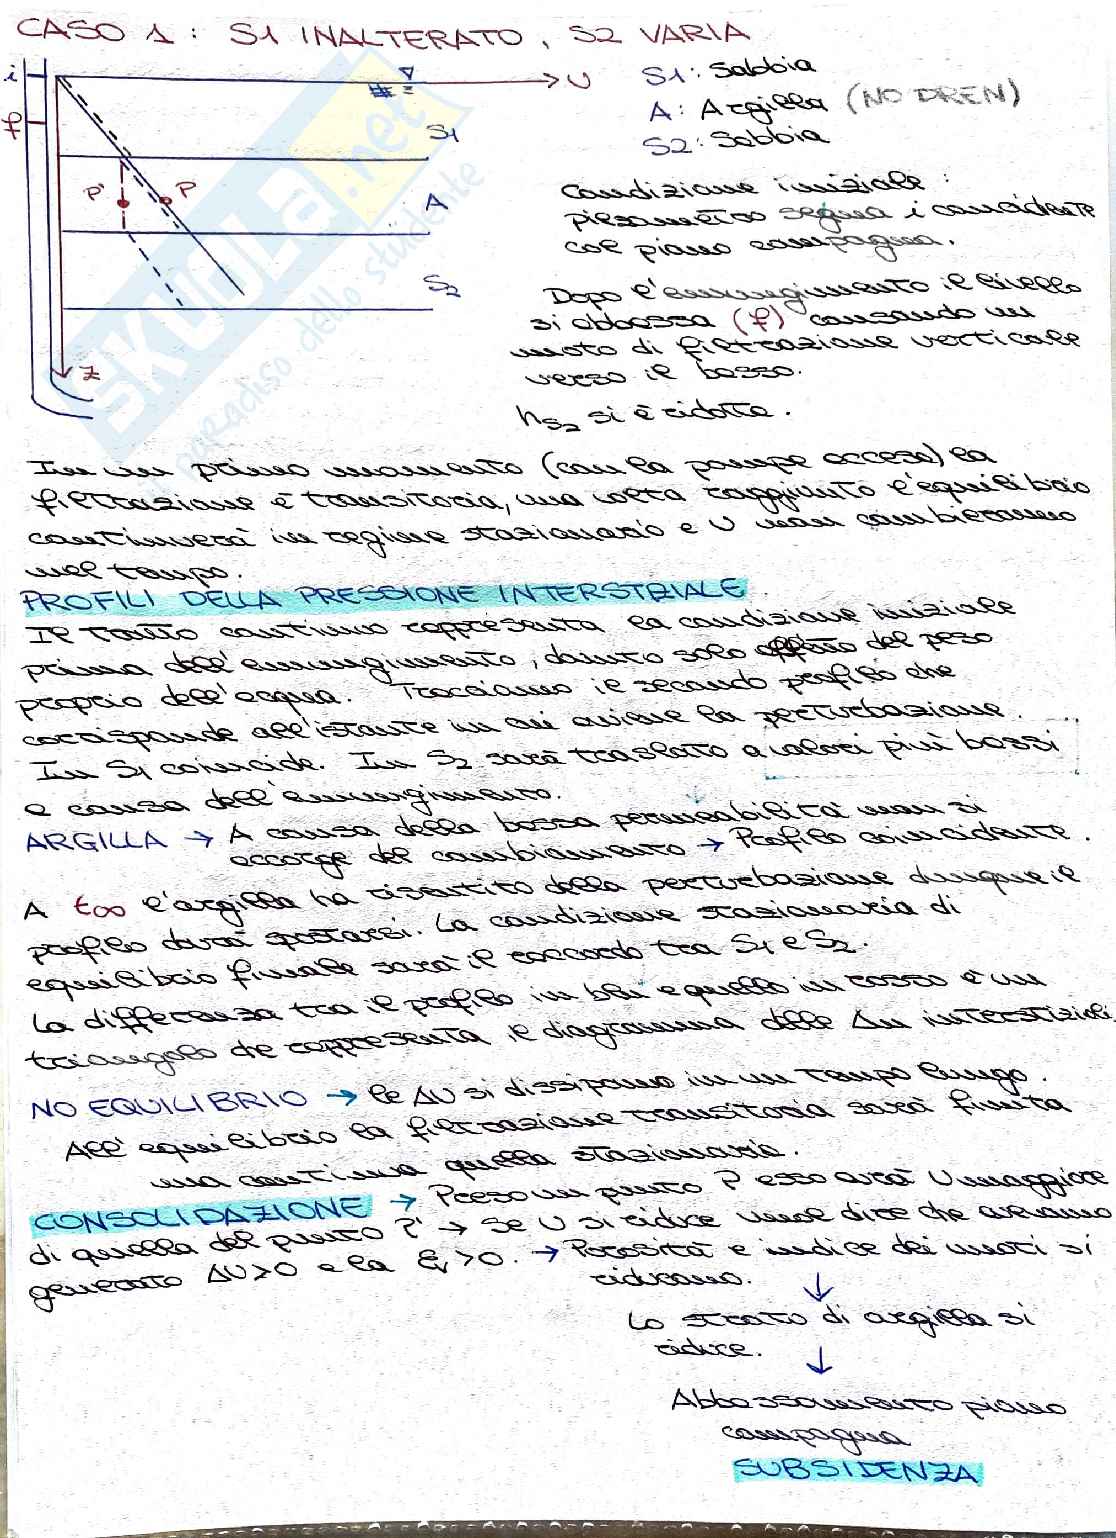 CASO 1 : S1 INALTERATO, S2 VARIA
i
U
f
S1
P'
P
A
S2
z
S1: Sabbia
A: Argilla (NO DREN)
S2: Sabbia
Condizione iniziale :
piezometro segna i coincidente
col piano campagna.
Dopo l'emungimento il livello
si abbassa (f) causando un
moto di filtrazione verticale
verso il basso.
hS2 si è ridotta.
SKUOLA.net
paradiso dello studente
In un primo momento (con la pompa accesa) la
filtrazione è transitoria, una volta raggiunto l'equilibrio
continuerà in regime stazionario e U non cambieranno
nel tempo.
PROFILI DELLA PRESSIONE INTERSTRIALE
Il tratto continuo rappresenta la condizione iniziale
prima dell'emungimento, dovuto solo del peso
proprio dell'acqua. Tracciamo il secondo profilo che
corrisponde all'istante in cui avviene la perturbazione.
In S1 coincide. In S2 sarà traslato a valori più bassi
a causa dell'emungimento.
ARGILLA → A causa della bassa permeabilità non si
accorge del cambiamento → Profilo coincidente.
A t∞ l'argilla ha risentito della perturbazione dunque il
profilo dovrà spostarsi. La condizione stazionaria di
equilibrio finale sarà il raccordo tra S1 e S2.
La differenza tra il profilo in blu e quello in rosso è un
triangolo che rappresenta il diagramma delle Δu interstiziali.
NO EQUILIBRIO → le ΔU si dissipano in un tempo lungo.
All'equilibrio la filtrazione transitoria sarà finita
ma continua quella stazionaria.
CONSOLIDAZIONE → Preso un punto P esso avrà U maggiore
di quella del punto P' → Se U si riduce vuol dire che avevamo
generato ΔU>0 e la εv >0. → Porosità e indice dei vuoti si
riducono.
↓
Lo strato di argilla si
riduce.
↓
Abbassamento piano
campagna
SUBSIDENZA